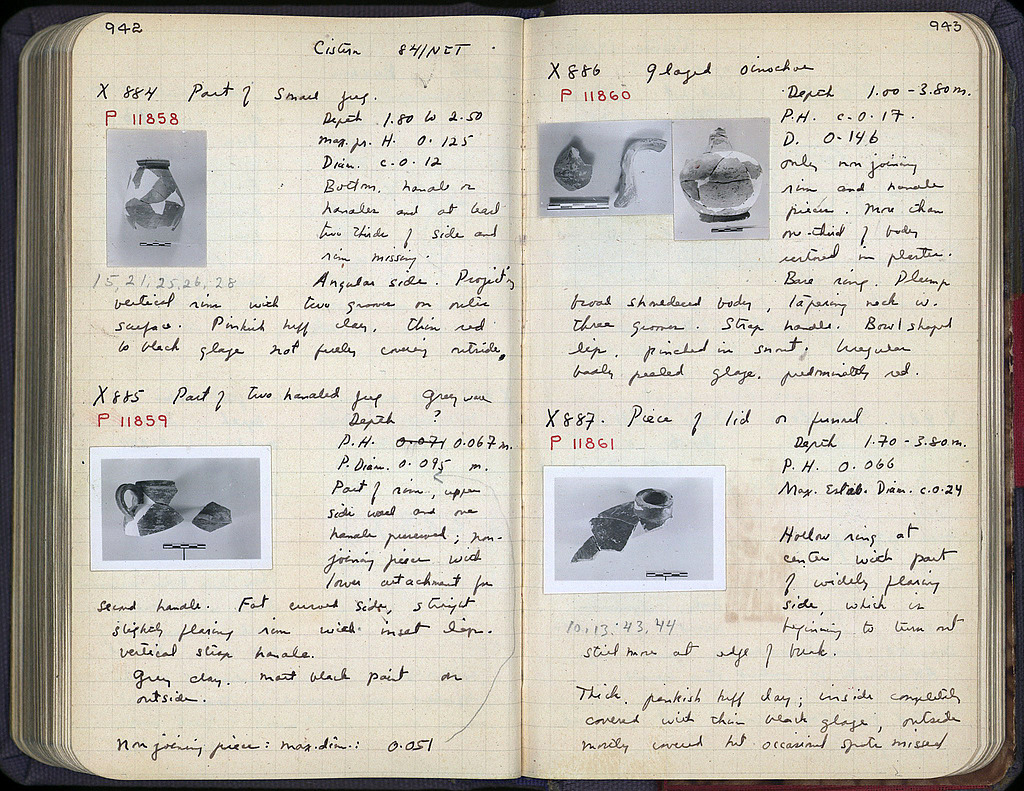 942
Cistern 84/NET
X 884 Part of small jug.
P 11858
Depth 1.80 to 2.50
max. pr. H. 0.125
Diam. c. 0.12
Bottom, handle or
handles and at least
two thirds of side and
rim missing.
15, 21, 25, 26, 28
Angular side. Project'g
vertical rim with two grooves on outer
surface. Pinkish buff clay, thin red
to black glaze not fully covering outside.
X885 Part of two handled jug Grey ware
P 11859
Depth ?
P.H. 0.071 0.067 m.
P. Diam. 0.095 m.
Part of rim, upper
side wall and one
handle preserved; non-
joining piece with
lower attachment for
second handle. Fat curved side, straight
slightly flaring rim with inset lip.
vertical strap handle.
Grey clay. matt black paint on
outside.
Non joining piece: max. dim.: 0.051
943
X886 Glazed oinochoe
P 11860
Depth 1.00 - 3.80 m.
P.H. c. 0.17.
D. 0.146
only non joining
rim and handle
pieces. More than
one-third of body
restored in plaster.
Base ring. Plump
broad shouldered body, tapering neck w.
three grooves. Strap handle. Bowl shaped
lip, pinched in snout. Irregular
badly peeled glaze, predominately red.
X887. Piece of lid or funnel
P 11861
Depth 1.70 - 3.80 m.
P.H. 0.066
Max. Estab. Diam. c. 0.24
Hollow ring at
center with part
of widely flaring
side, which is
beginning to turn out
10, 13, 43, 44
still more at edge of break.
Thick, pinkish buff clay; inside completely
covered with thin black glaze, outside
mostly covered but occasional spots missed